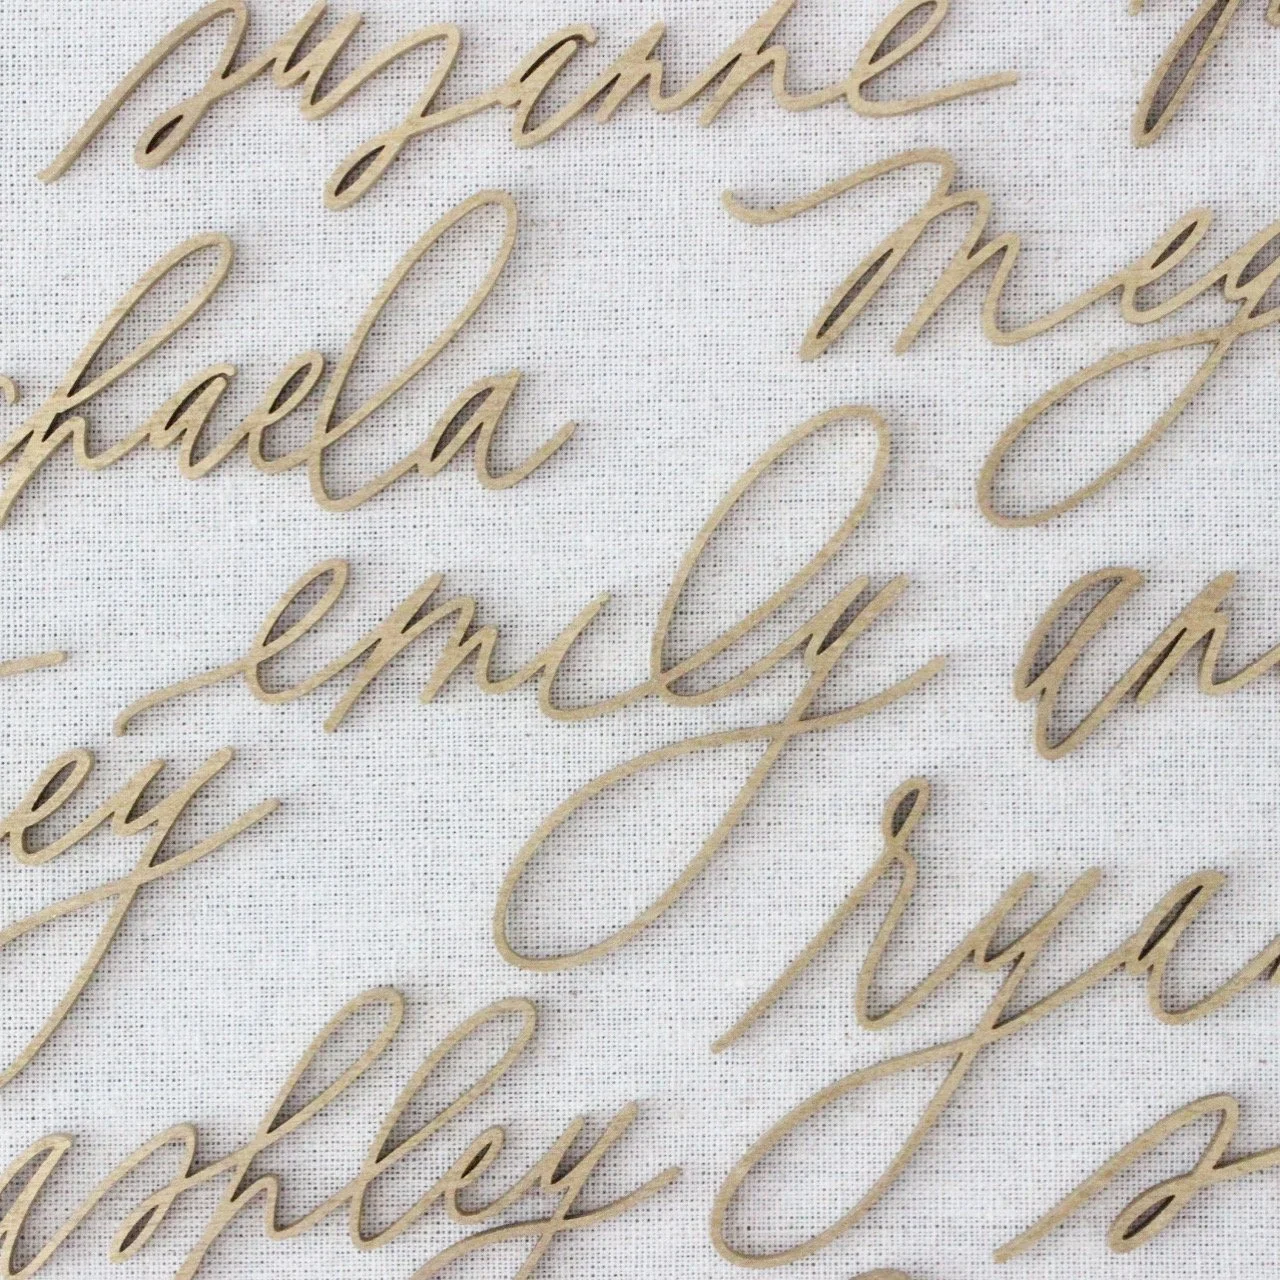 suzanne
meg
haela
emily
an
ey
rya
ashley